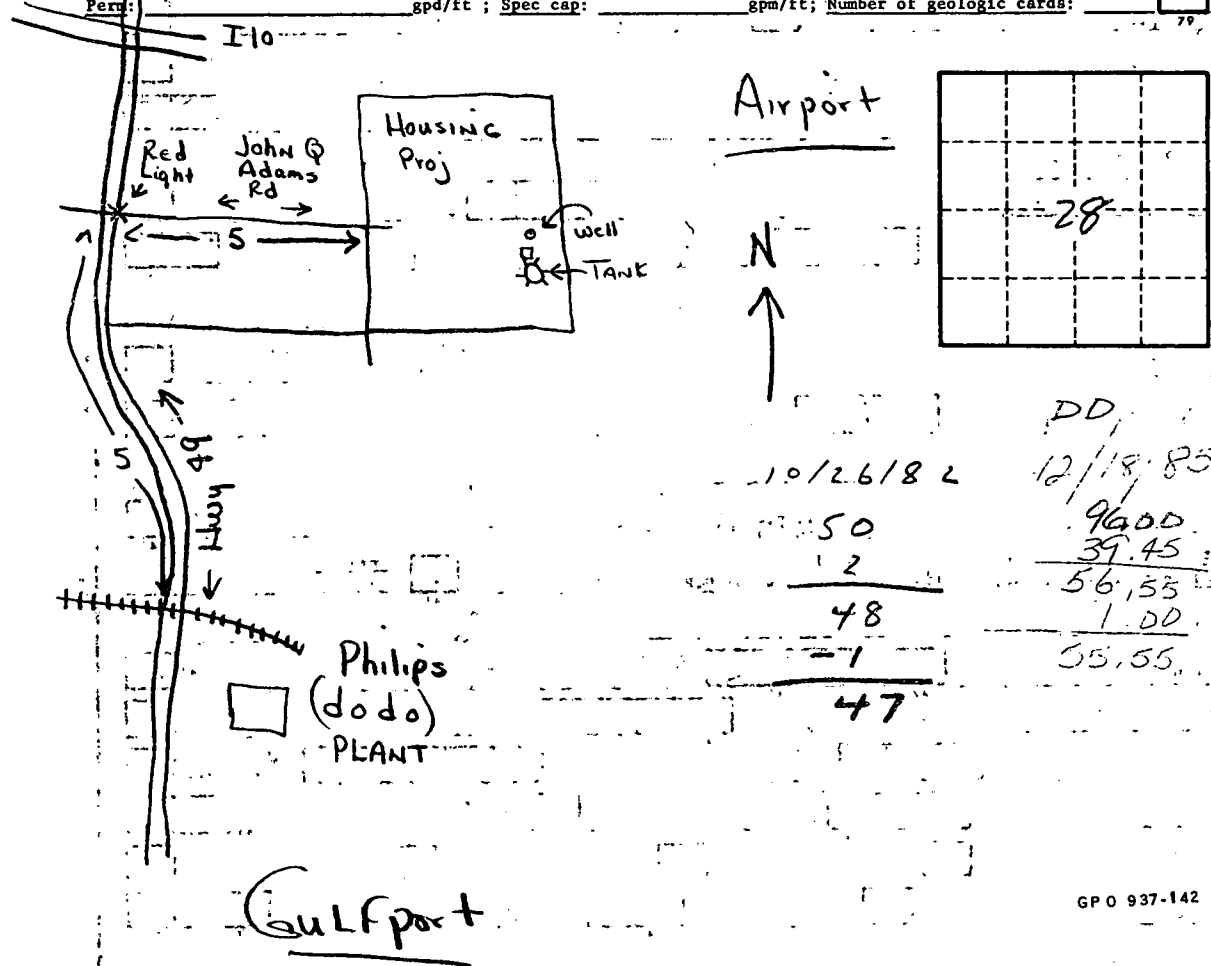 Perm: gpd/ft ; Spec cap: gpm/ft; Number of geologic cards:
79
I-10
Airport
Housing
Proj
Red
Light
John Q
Adams
Rd
5
well
TANK
28
N
5
Hwy 49
DD
12/18/85
96.00
39.45
56.55
1.00
55.55
10/26/82
50
2
48
-1
47
Philips
(dodo)
PLANT
Gulfport
GPO 937-142